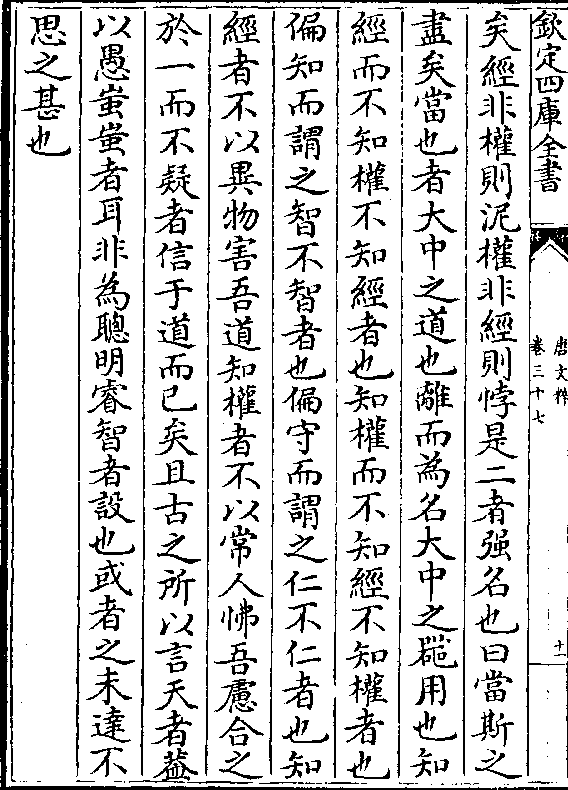 欽定四庫全書
唐文粹
卷三十七
十一
矣經非權則泥權非經則悖是二者强名也曰當斯之
盡矣當也者大中之道也離而為名大中之器用也知
經而不知權不知經者也知權而不知經不知權者也
偏知而謂之智不智者也偏守而謂之仁不仁者也知
經者不以異物害吾道知權者不以常人怫吾慮合之
於一而不疑者信于道而已矣且古之所以言天者葢
以愚蚩蚩者耳非為聰明睿智者設也或者之未達不
思之甚也